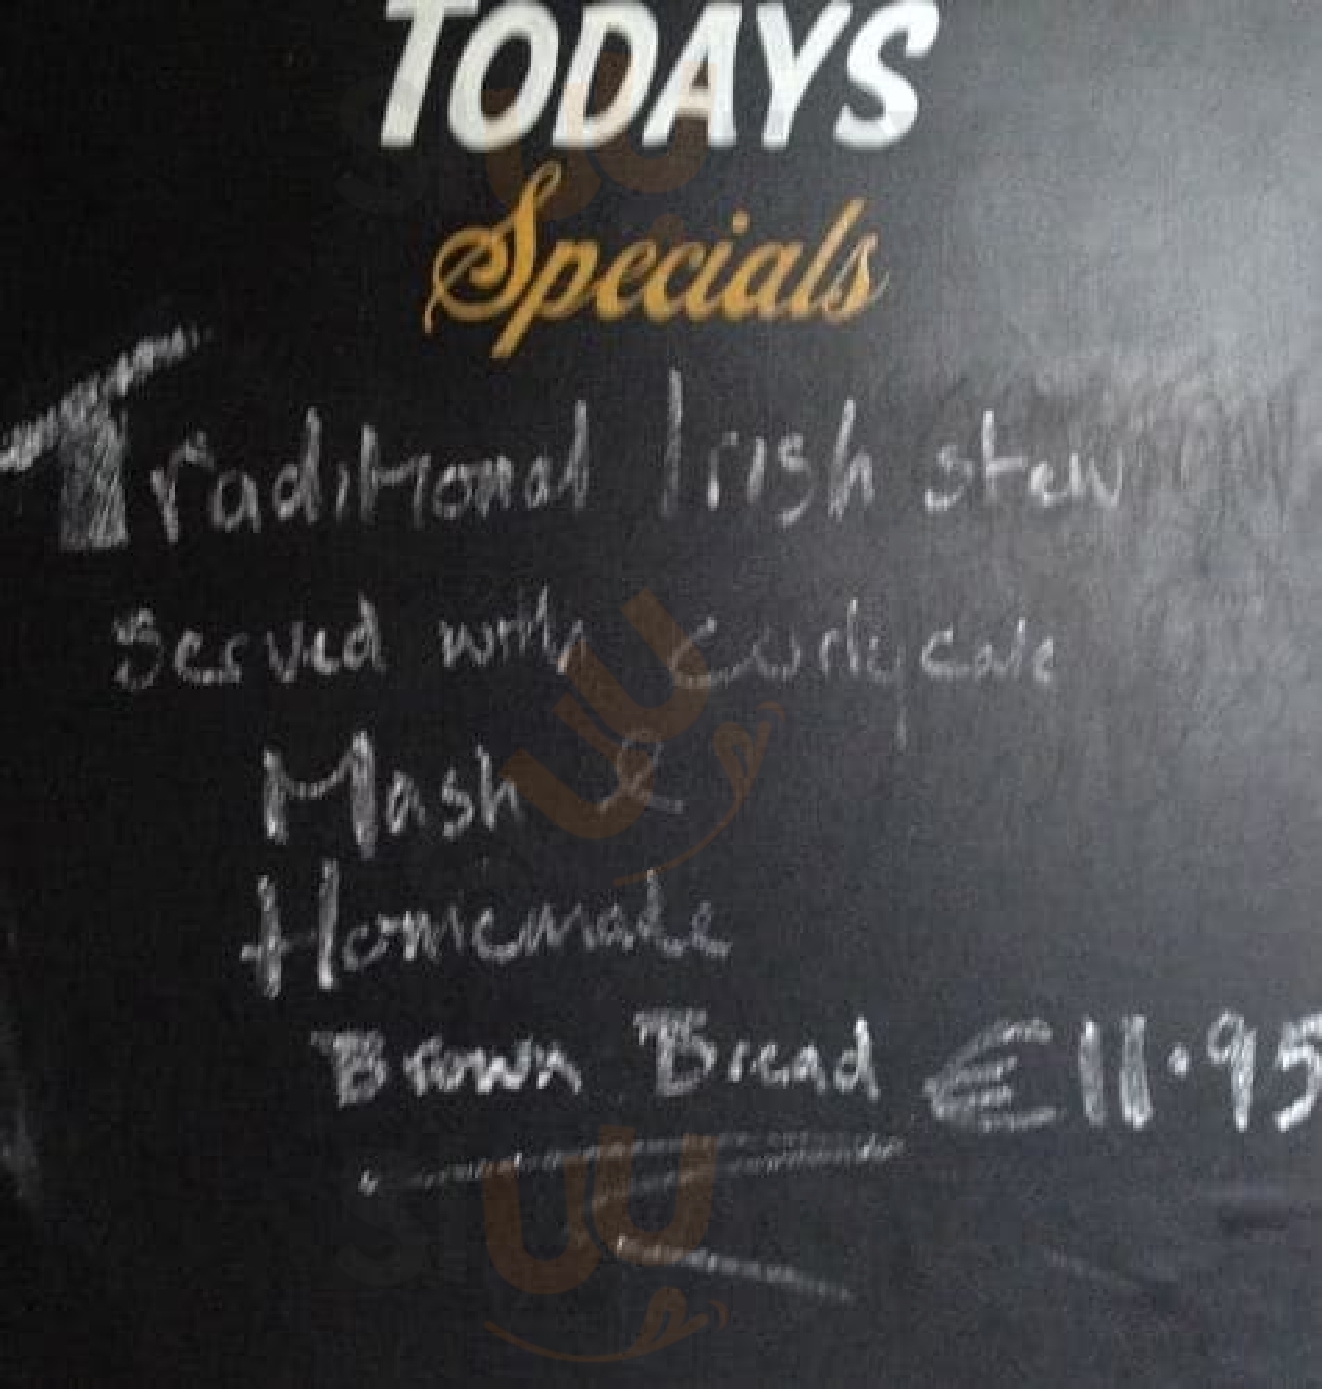 TODAYS
Specials
Traditional Irish stew
served with curlycale
Mash &
Homemade
Brown Bread €11.95